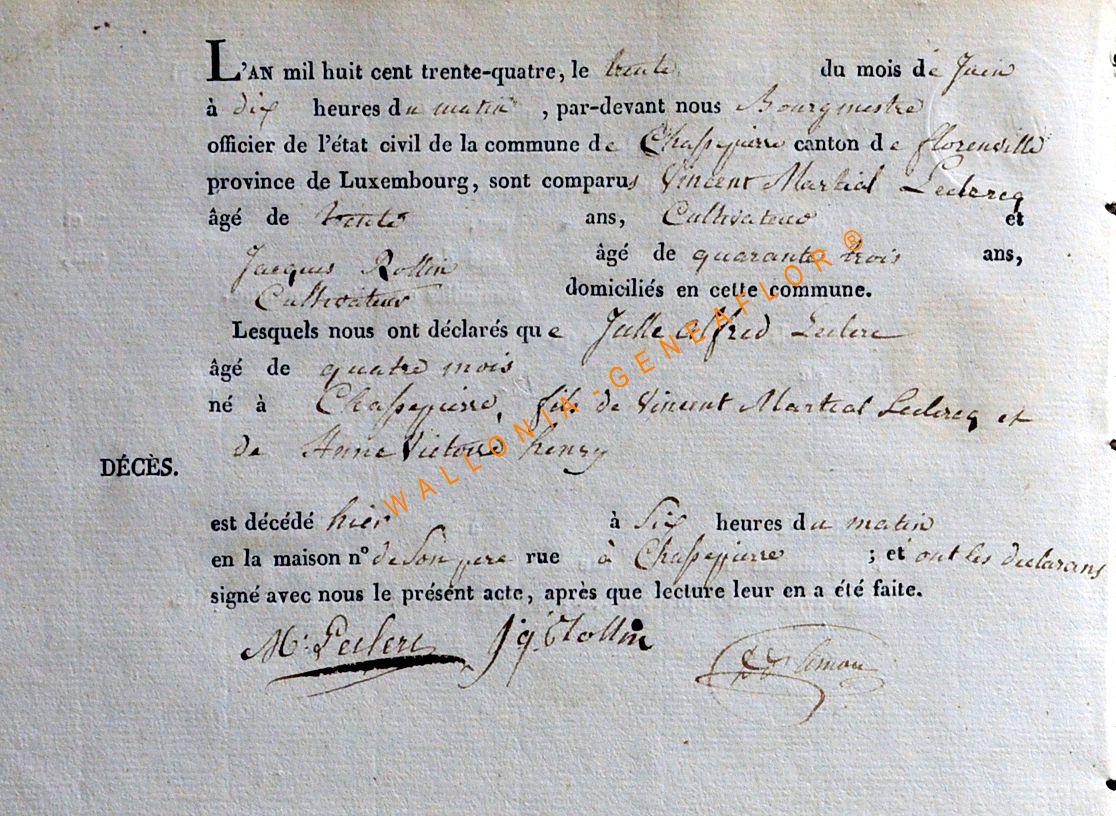 L'AN mil huit cent trente-quatre, le trente du mois de Juin
à dix heures du matin, par-devant nous Bourgmestre
officier de l'état civil de la commune de Chassepierre canton de florenville
province de Luxembourg, sont comparus Vincent Martial Leclercq
âgé de trente ans, Cultivateur et
Jacques Rollin âgé de quarante trois ans,
Cultivateur domiciliés en cette commune.
Lesquels nous ont déclarés que Julle alfred Leclerc
âgé de quatre mois
né à Chassepierre, fils de Vincent Martial Leclercq et
de Anne Victoire henry
DÉCÈS.
est décédé hier à Six heures du matin
en la maison n° de Son pere rue à Chassepierre ; et ont les declarans
signé avec nous le présent acte, après que lecture leur en a été faite.
M. Leclerc Jq. Rollin Simon
WALLONIA-GENEAFLOR®